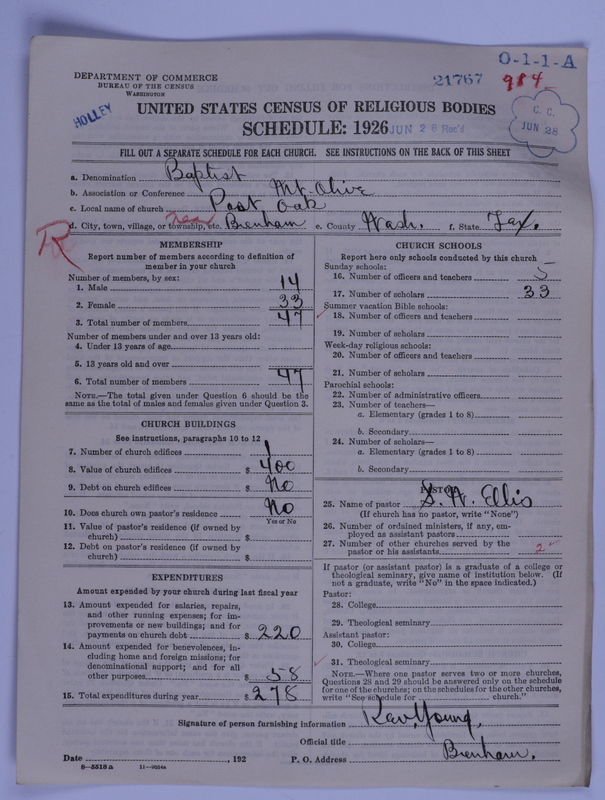 O-1-1-A
DEPARTMENT OF COMMERCE
BUREAU OF THE CENSUS
WASHINGTON
21767 984
HOLLEY
C. C.
JUN 28
UNITED STATES CENSUS OF RELIGIOUS BODIES
SCHEDULE: 1926 JUN 28 Rec'd
FILL OUT A SEPARATE SCHEDULE FOR EACH CHURCH. SEE INSTRUCTIONS ON THE BACK OF THIS SHEET
a. Denomination Baptist
b. Association or Conference Mt. Olive
c. Local name of church Post Oak
d. City, town, village, or township, etc. near Brenham e. County Wash. f. State Tex.
R
MEMBERSHIP
Report number of members according to definition of
member in your church
Number of members, by sex:
1. Male 14
2. Female 33
3. Total number of members 47
Number of members under and over 13 years old:
4. Under 13 years of age
5. 13 years old and over
6. Total number of members 47
NOTE.—The total given under Question 6 should be the
same as the total of males and females given under Question 3.
CHURCH BUILDINGS
See instructions, paragraphs 10 to 12
7. Number of church edifices 1
8. Value of church edifices $ 400
9. Debt on church edifices $ No
10. Does church own pastor's residence No
Yes or No
11. Value of pastor's residence (if owned by
church) $
12. Debt on pastor's residence (if owned by
church) $
EXPENDITURES
Amount expended by your church during last fiscal year
13. Amount expended for salaries, repairs,
and other running expenses; for im-
provements or new buildings; and for
payments on church debt $ 220
14. Amount expended for benevolences, in-
cluding home and foreign missions; for
denominational support; and for all
other purposes $ 58
15. Total expenditures during year $ 278
CHURCH SCHOOLS
Report here only schools conducted by this church
Sunday schools:
16. Number of officers and teachers 5
17. Number of scholars 33
Summer vacation Bible schools:
18. Number of officers and teachers
19. Number of scholars
Week-day religious schools:
20. Number of officers and teachers
21. Number of scholars
Parochial schools:
22. Number of administrative officers
23. Number of teachers—
a. Elementary (grades 1 to 8)
b. Secondary
24. Number of scholars—
a. Elementary (grades 1 to 8)
b. Secondary
PASTOR
25. Name of pastor S. W. Ellis
(If church has no pastor, write "None")
26. Number of ordained ministers, if any, em-
ployed as assistant pastors
27. Number of other churches served by the
pastor or his assistants 2
If pastor (or assistant pastor) is a graduate of a college or
theological seminary, give name of institution below. (If
not a graduate, write "No" in the space indicated.)
Pastor:
28. College
29. Theological seminary
Assistant pastor:
30. College
31. Theological seminary
NOTE.—Where one pastor serves two or more churches,
Questions 28 and 29 should be answered only on the schedule
for one of the churches; on the schedules for the other churches,
write "See schedule for church."
Signature of person furnishing information Rav. Young.
Official title
Date , 192 P. O. Address Brenham.
8-5518a 11-9554a